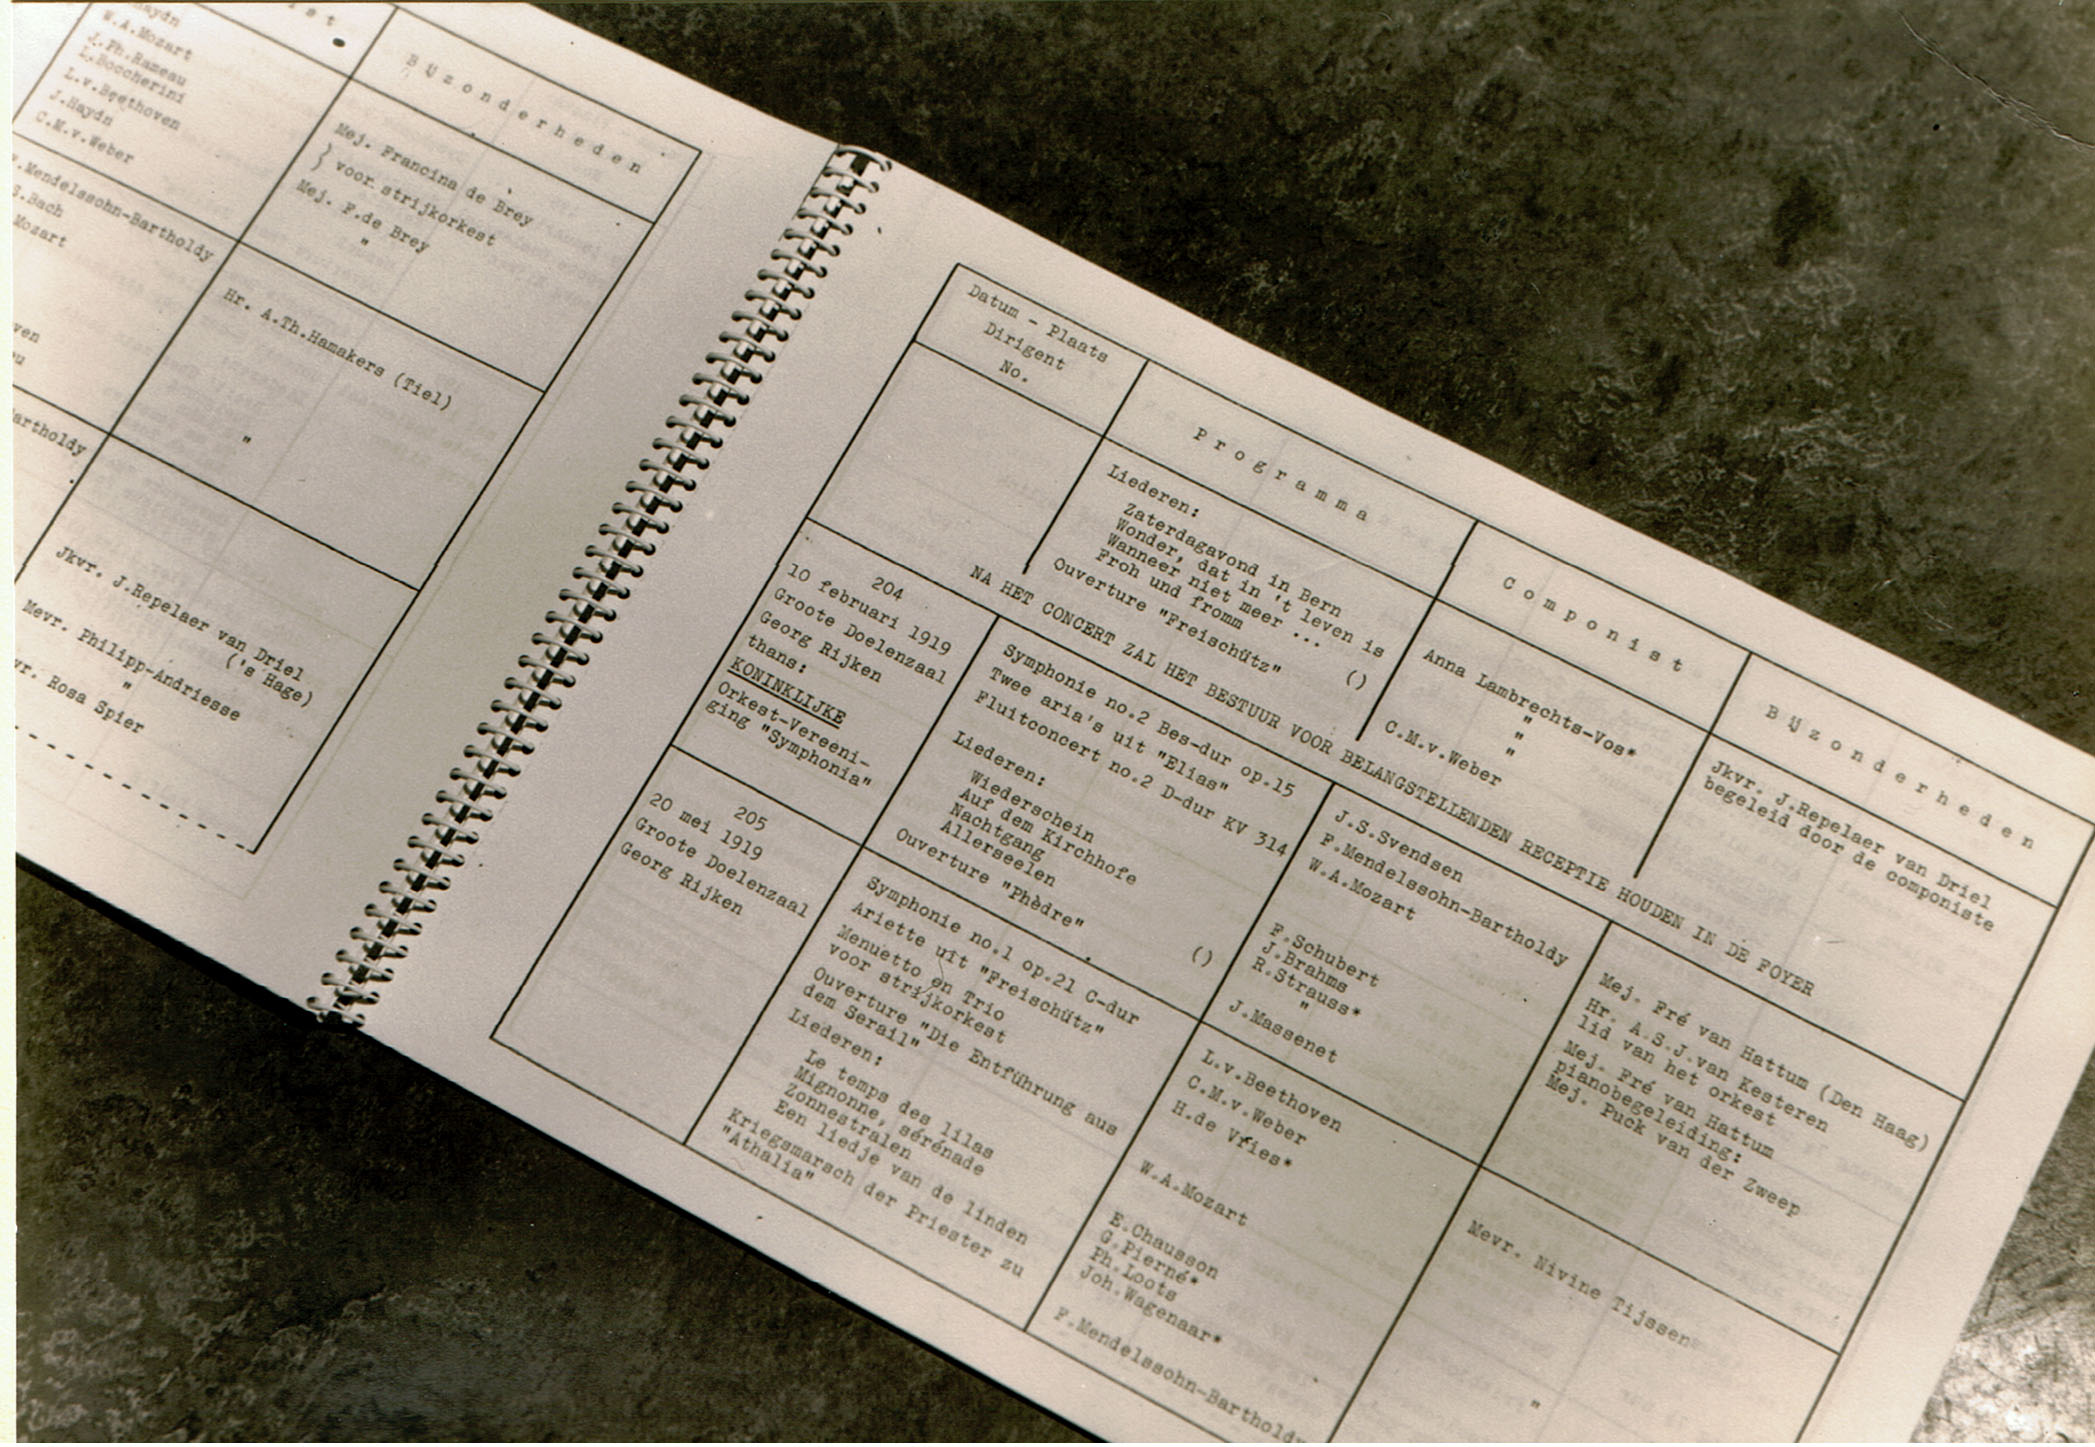 Haydn
W.A.Mozart
J.Ph.Rameau
L.Boccherini
L.v.Beethoven
J.Haydn
C.M.v.Weber
Mendelssohn-Bartholdy
Bach
Mozart
Bijzonderheden
Mej. Francina de Brey
} voor strijkorkest
Mej. F.de Brey
"
Hr. A.Th.Hamakers (Tiel)
"
Jkvr. J.Repelaer van Driel
('s Hage)
Mevr. Philipp-Andriesse
"
Rosa Spier
Datum - Plaats
Dirigent
No.
Programma
Componist
Bijzonderheden
Liederen:
Zaterdagavond in Bern
Wonder, dat in 't leven is
Wanneer niet meer ...
Froh und fromm
Ouverture "Freischütz" ()
Anna Lambrechts-Vos*
"
"
C.M.v.Weber
Jkvr. J.Repelaer van Driel
begeleid door de componiste
NA HET CONCERT ZAL HET BESTUUR VOOR BELANGSTELLENDEN RECEPTIE HOUDEN IN DE FOYER
204
10 februari 1919
Groote Doelenzaal
Georg Rijken
thans:
KONINKLIJKE
Orkest-Vereeni-
ging "Symphonia"
Symphonie no.2 Bes-dur op.15
Twee aria's uit "Elias"
Fluitconcert no.2 D-dur KV 314
Liederen:
Wiederschein
Auf dem Kirchhofe
Nachtgang
Allerseelen
Ouverture "Phèdre" ()
J.S.Svendsen
F.Mendelssohn-Bartholdy
W.A.Mozart
F.Schubert
J.Brahms
R.Strauss*
"
J.Massenet
Mej. Fré van Hattum (Den Haag)
Hr. A.S.J.van Kesteren
lid van het orkest
Mej. Fré van Hattum
pianobegeleiding:
Mej. Puck van der Zweep
205
20 mei 1919
Groote Doelenzaal
Georg Rijken
Symphonie no.1 op.21 C-dur
Ariette uit "Freischütz"
Menuetto en Trio
voor strijkorkest
Ouverture "Die Entführung aus
dem Serail"
Liederen:
Le temps des lilas
Mignonne, sérénade
Zonnestralen
Een liedje van de linden
Kriegsmarsch der Priester zu
"Athalia"
L.v.Beethoven
C.M.v.Weber
H.de Vries*
W.A.Mozart
E.Chausson
G.Pierné*
Ph.Loots
Joh.Wagenaar*
F.Mendelssohn-Bartholdy
Mevr. Nivine Tijssen
"